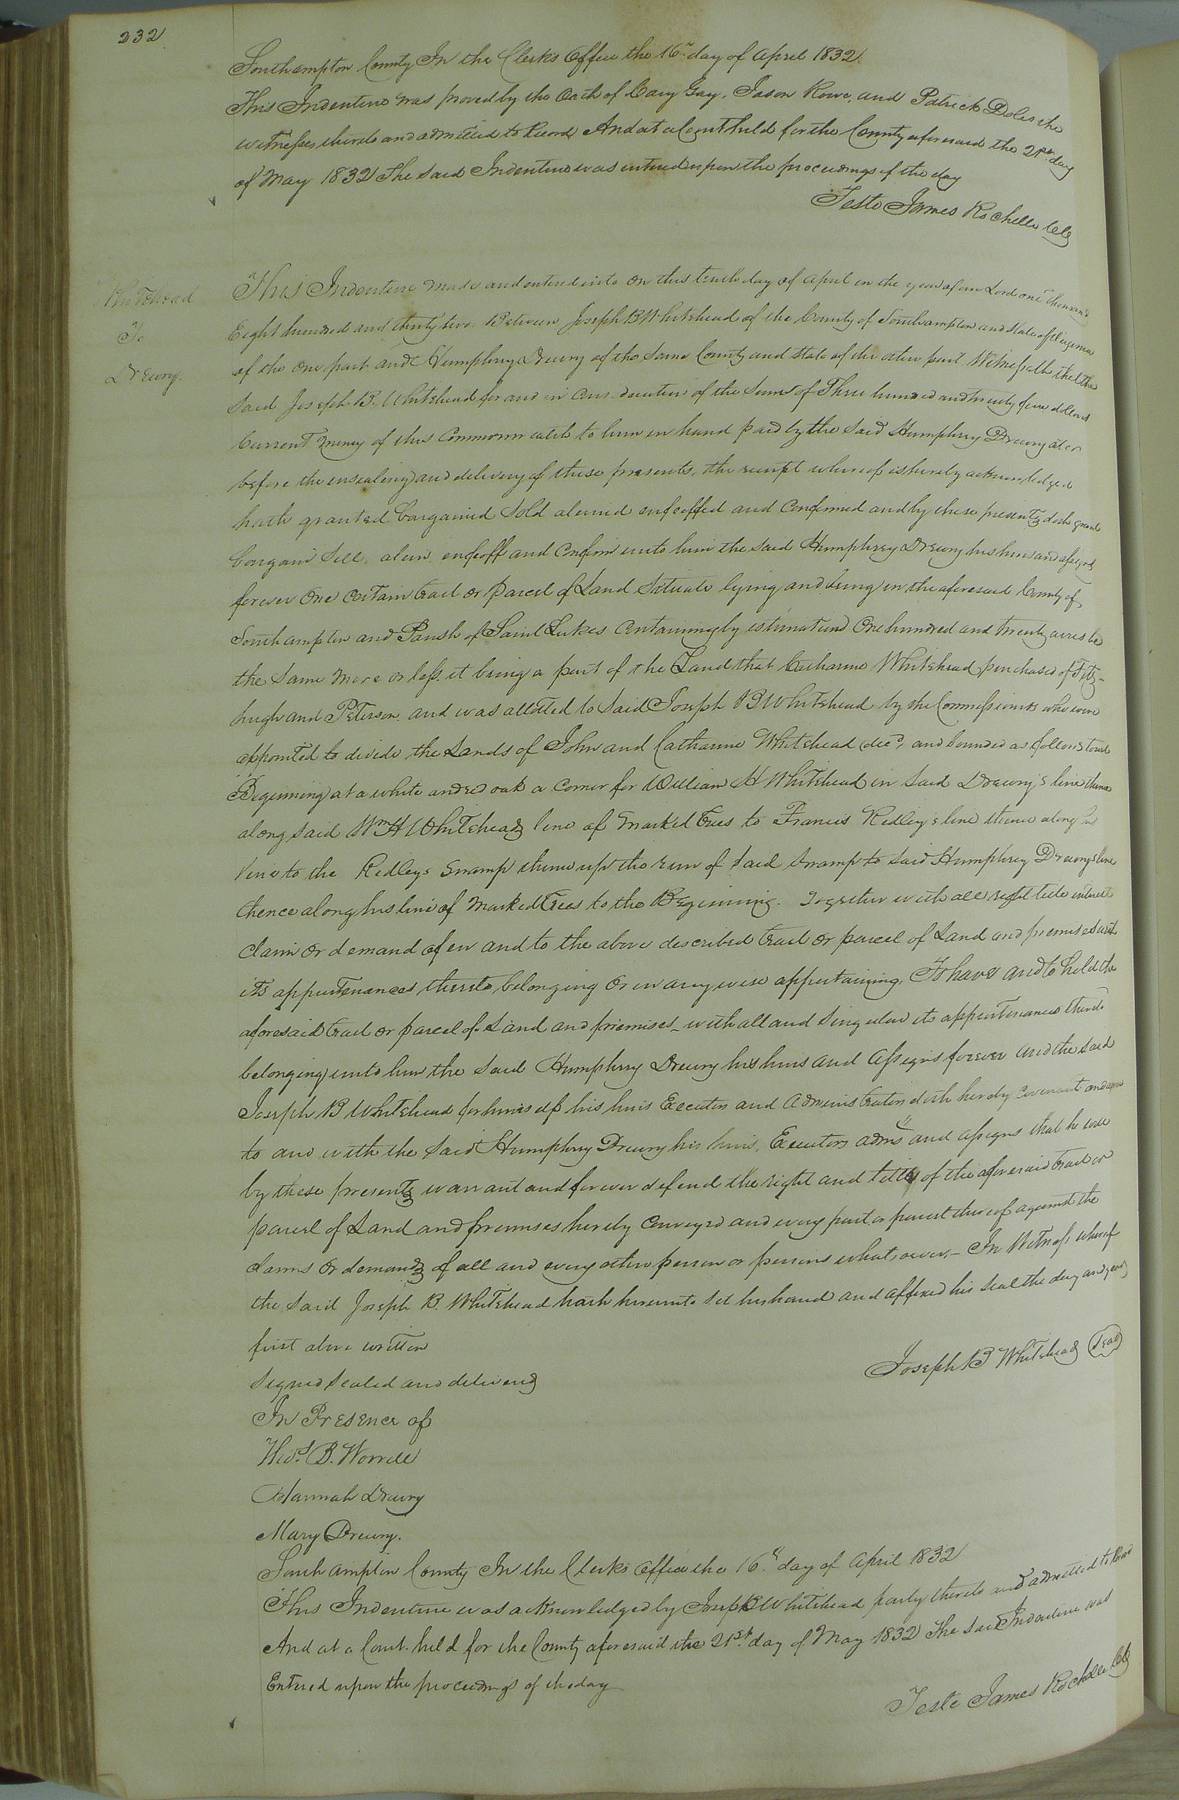 232
Southampton County In the Clerks Office the 16th day of April 1832.
This Indenture was proved by the oath of Cary Gay, Jason Rowe, and Patrick Doles the
witnesses thereto and admitted to Record And at a Court held for the County aforesaid the 21st day
of May 1832 The said Indenture was entered upon the proceedings of the day
Teste James Rochelle Clk
Whitehead
To
Drewry.
This Indenture made and entered into on this tenth day of April in the year of our Lord one thousand
Eight hundred and thirty two Between Joseph B Whitehead of the County of Southampton and State of Virginia
of the one part and Humphrey Drewry of the same County and State of the other part Witnesseth that the
said Joseph B. Whitehead for and in consideration of the sum of Three hundred and twenty four dollars
Current money of this Commonwealth to him in hand paid by the said Humphrey Drewry at or
before the ensealing and delivery of these presents, the receipt whereof is hereby acknowledged
hath granted bargained sold aliened enfeoffed and Confirmed and by these presents doth grant
bargain sell, alien, enfeoff and Confirm unto him the said Humphrey Drewry his heirs and assigns
forever One certain tract or parcel of Land Situate lying and being in the aforesaid County of
Southampton and Parish of Saint Lukes Containing by estimation One hundred and twenty acres be
the same more or less it being a part of the Land that Catharine Whitehead purchased of Fitz-
hugh and Peterson and was allotted to said Joseph B Whitehead by the Commissioners who were
appointed to divide the Lands of John and Catharine Whitehead decd. and bounded as follows towit
Beginning at a white and red oak a corner for William H Whitehead in said Drewry's line thence
along said Wm H Whiteheads line of marked trees to Francis Ridley's line thence along his
line to the Ridleys Swamp thence up the run of said swamp to said Humphrey Drewrys line
thence along his line of Marked trees to the Beginning. Together with all right title interest
claim or demand of in and to the above described tract or parcel of Land and premises with
its appurtenances thereto belonging or in any wise appertaining, To have and to hold the
aforesaid tract or parcel of Land and premises with all and singular its appurtenances thereto
belonging unto him the said Humphrey Drewry his heirs and assigns forever and the said
Joseph B Whitehead for himself his heirs Executors and Administrators doth hereby Covenant and agree
to and with the said Humphrey Drewry his heirs, Executors adms and assigns that he will
by these presents warrant and forever defend the right and title of the aforesaid tract or
parcel of Land and premises hereby conveyed and every part or parcel thereof against the
claims or demands of all and every other person or persons whatsoever. - In Witness whereof
the said Joseph B Whitehead hath hereunto set his hand and affixed his seal the day and year
first above written
Joseph B Whitehead Seal
Signed Sealed and delivered
In Presence of
Thos. B. Worrell
Hannah Drewry
Mary Drewry.
Southampton County In the Clerks Office the 16th day of April 1832
This Indenture was acknowledged by Joseph B Whitehead party thereto and admitted to Record
And at a Court held for the County aforesaid the 21st day of May 1832 The said Indenture was
Entered upon the proceedings of the day
Teste James Rochelle Clk